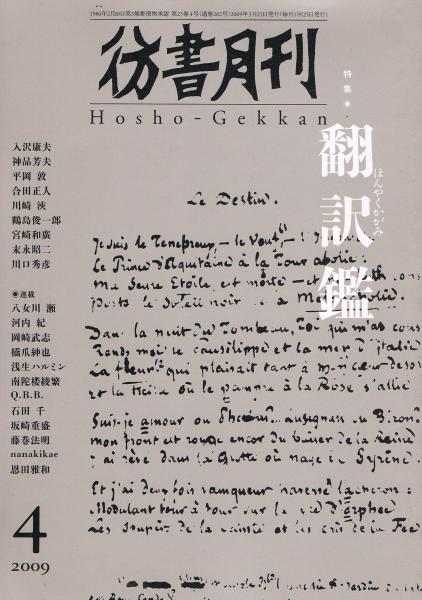 1986年2月10日第3種郵便物承認 第25巻4号(通巻282号)2009年3月25日発行(毎月1回25日発行)
彷書月刊
Hosho-Gekkan
特集
翻訳鑑
ほんやくかがみ
入沢康夫
神品芳夫
平岡 敦
合田正人
川崎 浹
鶴島俊一郎
宮崎和廣
末永昭二
川口秀彦
◉連載
八女川 瀬
河内 紀
岡崎武志
橋爪紳也
浅生ハルミン
南陀楼綾繁
Q.B.B.
石田 千
坂崎重盛
藤巻法明
nanakikae
恩田雅和
4
2009
Le Destin.
Je suis le Tenebreux, le Veuf,
Le Prince d'Aquitaine à la Tour abolie:
Ma Seule Etoile, et morte
porte le Soleil noir
Dans la nuit du Tombeau, Toi qui m'as cons
Rends moi le Pausilippe et la mer d'Italie
La fleur qui plaisait tant à mon cœur desol
et la Treille où le pampre à la Rose s'allie
Suis-je amour ou Phœbus?... Lusignan ou Biron?
mon front est rouge encor du baiser de la Reine
j'ai rêvé dans la Grotte où nage la Syrène.
Et j'ai deux fois vainqueur traversé l'acheron:
Modulant tour à tour sur la d'Orphée
Les soupirs de la sainte et les cris de la Fée